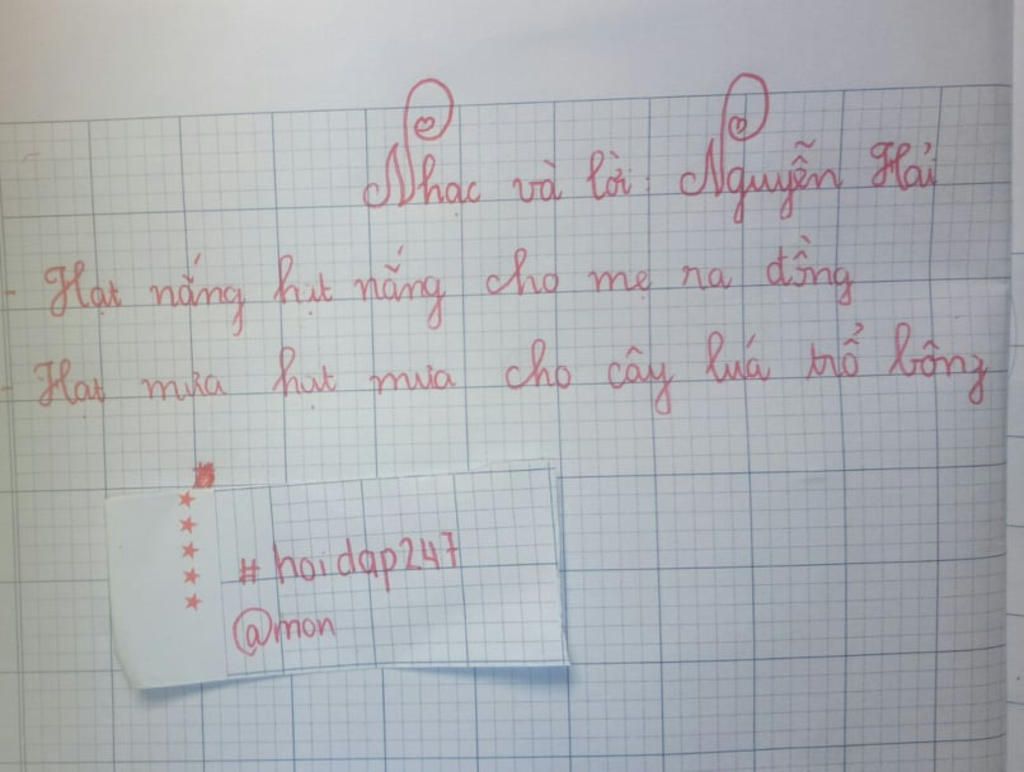 Nhạc và lời: Nguyễn Hải
- Hạt nắng hạt nắng cho mẹ ra đồng
- Hạt mưa hạt mưa cho cây luá trổ bông
# hoidap247
@mon